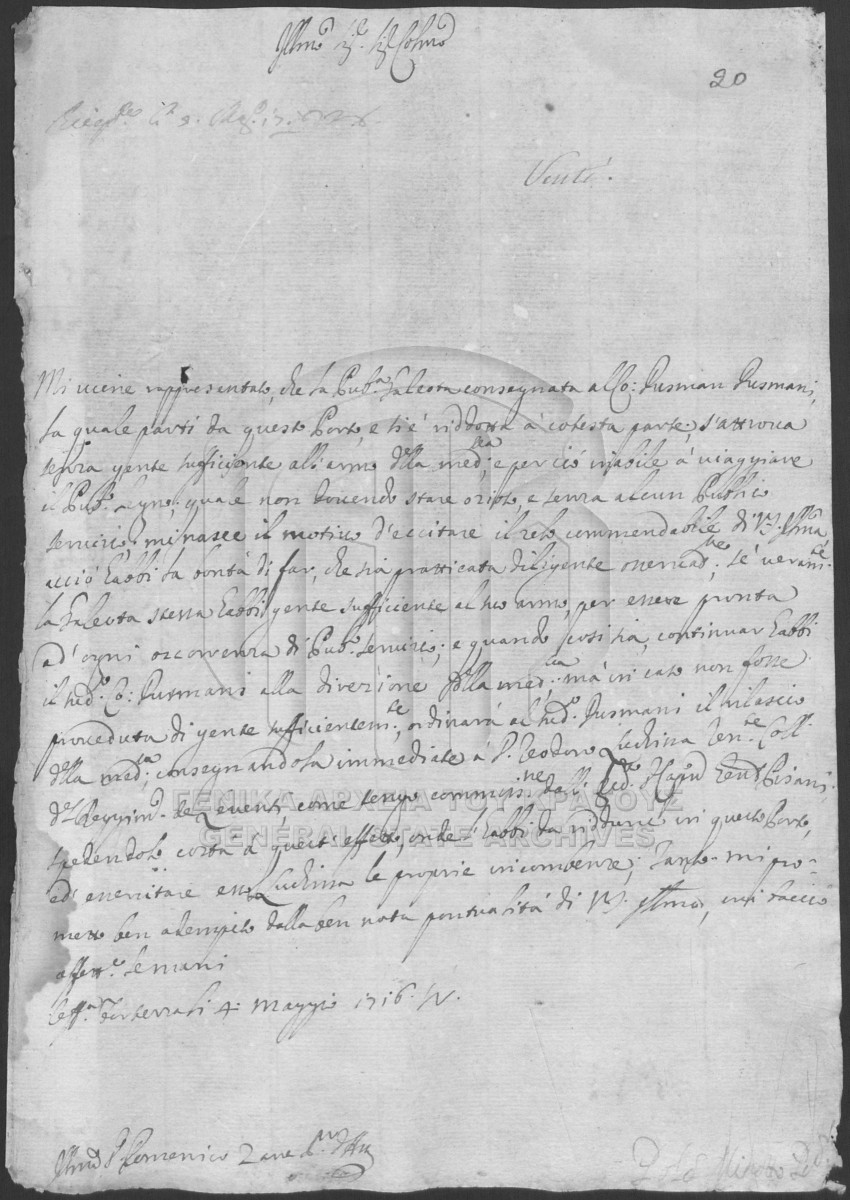 Illmo
20
Mi viene rappresentato, che la Pub.a Galeota consegnata al Co: Dusman Dusmani,
la quale partì da questo Porto, e si è ridotta à cotesta parte, s'attrova
senza gente sufficiente all'armo della med.ma, e perciò inabile à viaggiare
il Pub.o Legno; quale non dovendo stare otioso, e senza alcun Publico
servicio, mi nasce il motivo d'eccitare il zelo commendabile di V.S. Illma,
acciò habbi la bontà di far, che sia pratticata diligente se veram.te
la Galeota stessa habbi gente sufficiente al suo armo, per essere pronta
ad'ogni occorrenza di Pub.o servicio; e quando così sia, continuar habbi
il sud.o Co: Dusmani alla direzione della med.ma; mà in caso non fosse
proveduta di gente sufficientem.te, ordinarà al sud.o Dusmani il rilascio
della med.ma, consegnandola immediate à S. Teodoro Luchina Ten.te Coll.
de Levanti, come tengo commiss.ne dall' Pisani,
spedendolo costà a quest'effetto, onde l'habbi da ridurre in questo Porto,
ed' essercitare esso Luchina le proprie incombenze; Tanto mi pro-
metto ben adempito dalla ben nota pontualità di V.S. Illma, cui baccio
affett.te le mani
4: Maggio 1716. S.V.
Illmo S. Domenico Zane
ΓΕΝΙΚΑ ΑΡΧΕΙΑ ΤΟΥ ΚΡΑΤΟΥΣ
GENERAL STATE ARCHIVES